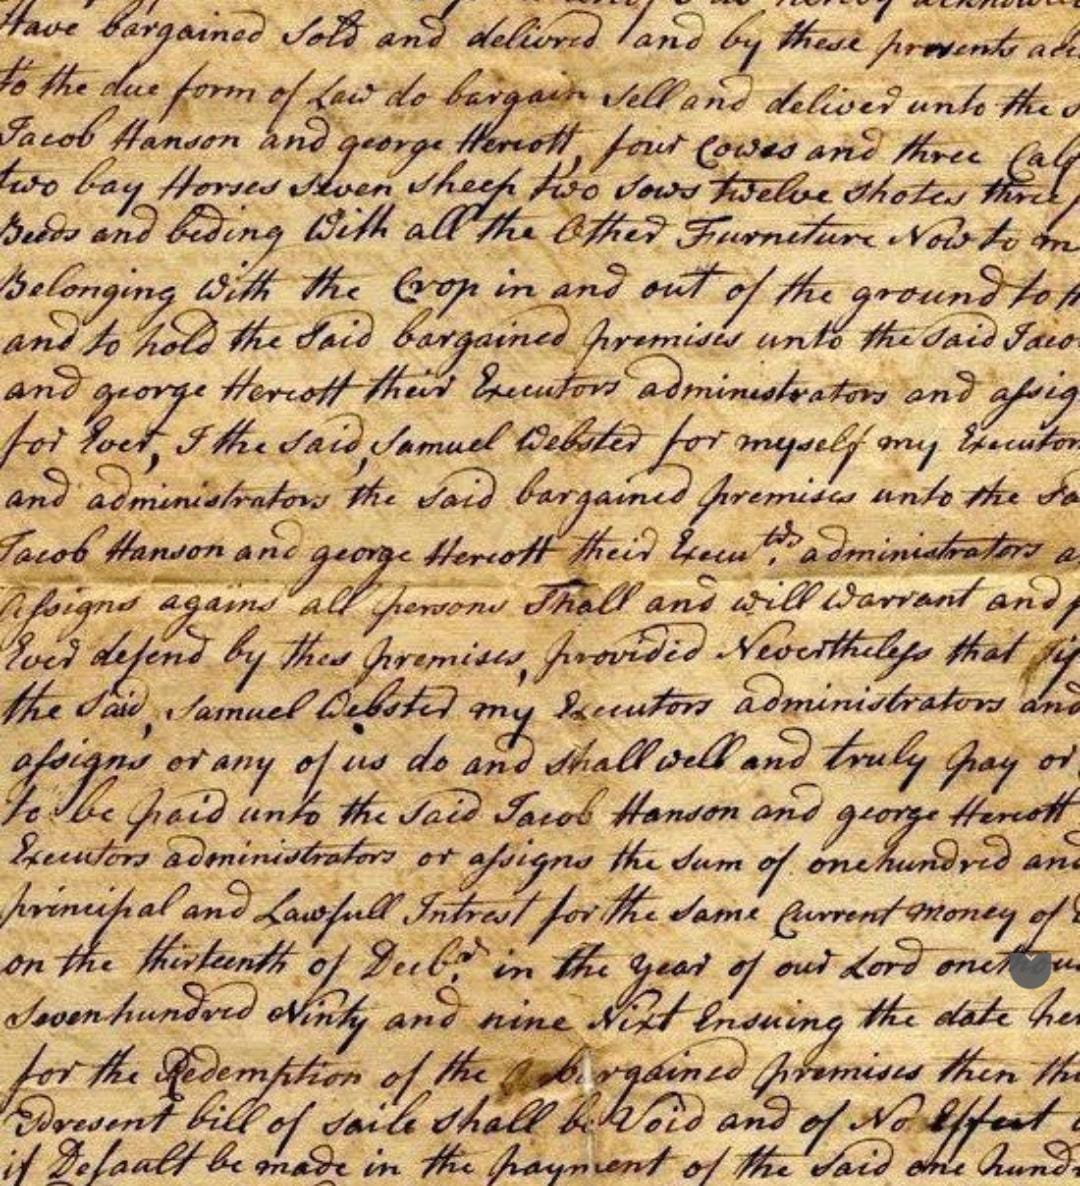 Have bargained Sold and delivred and by these presents
to the due form of Law do bargain Sell and deliver unto the
Jacob Hanson and george Hercott, four Cowes and three
two bay Horses seven sheep two sows twelve shotes three
Beeds and beding With all the Other Furneture Now to
Belonging with the Crop in and out of the ground to
and to hold the Said bargained premises unto the Said
and george Hercott their Executors administrators and
for Ever, I the Said, Samuel Webster for myself my Executors
and administrators the Said bargained premises unto the
Jacob Hanson and george Hercott their Execu.trs administrators
Assigns agains all persons Shall and will warrant and
Ever defend by thes premises, provided Nevertheless that if
the Said, Samuel Webster my Executors administrators and
assigns or any of us do and shall well and truly pay or
to be paid unto the Said Jacob Hanson and george Hercott
Executors administrators or assigns the Sum of one hundred and
principal and Lawfull Intrest for the same Current money of
on the thirteenth of Decb.r in the year of our Lord one
Sevenhundred Ninty and nine Next Ensuing the date
for the Redemption of the bargained premises then
Present bill of saile shall be Void and of No Effect
if Default be made in the payment of the Said one